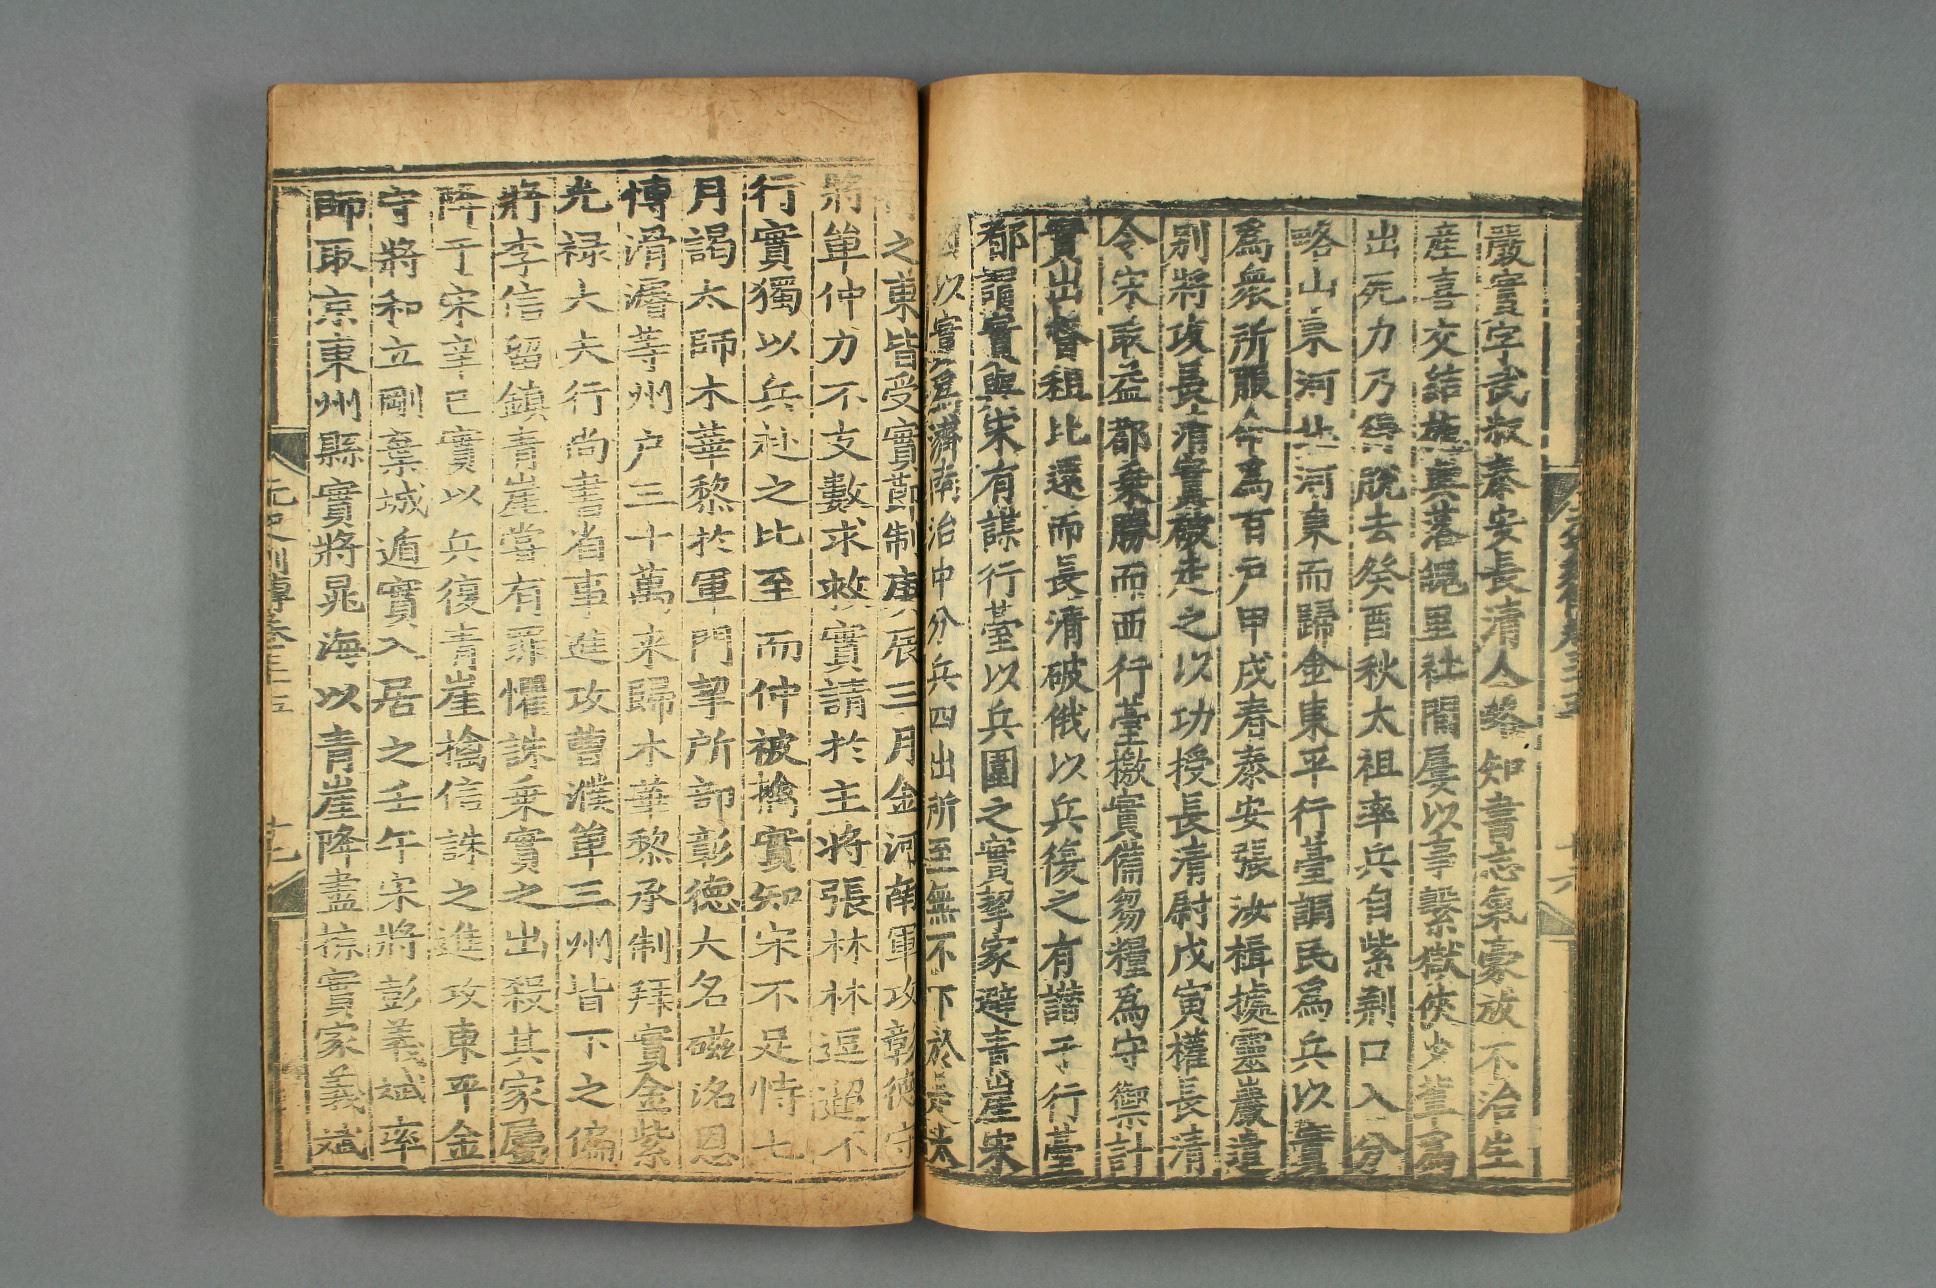 嚴實字武叔泰安長清人畧知書志氣豪放不治生
産喜交結施與落魄里社間屢以事繫獄俠少輩爲
出死力乃得脫去癸酉秋太祖率兵自紫荆口入分
略山東河北河東而歸金東平行臺調民爲兵以實
爲衆所服令爲百戶甲戌春泰安張汝楫據靈巖遣
別將攻長清實破走之以功授長清尉戊寅權長清
令宋取益都乗勝而西行臺檄實備芻糧爲守禦計
實出督租比還而長清破俄以兵復之有譖于行臺
者謂實與宋有謀行臺以兵圍之實挈家避青崖宋
因以實爲濟南治中分兵四出所至無不下於是太
行之東皆受實節制庚辰三月金河南軍攻彰德守
將單仲力不支數求救實請於主將張林林逗遛不
行實獨以兵赴之比至而仲被擒實知宋不足恃七
月謁太師木華黎於軍門挈所部彰德大名磁洺恩
博滑濬等州戶三十萬来歸木華黎承制拜實金紫
光禄大夫行尚書省事進攻曹濮單三州皆下之偏
將李信留鎮青崖嘗有罪懼誅乗實之出殺其家屬
降于宋辛巳實以兵復青崖擒信誅之進攻東平金
守將和立剛棄城遁實入居之壬午宋將彭義斌率
師取京東州縣實將晁海以青崖降盡掠實家義斌
元史列傳卷三十五
十七